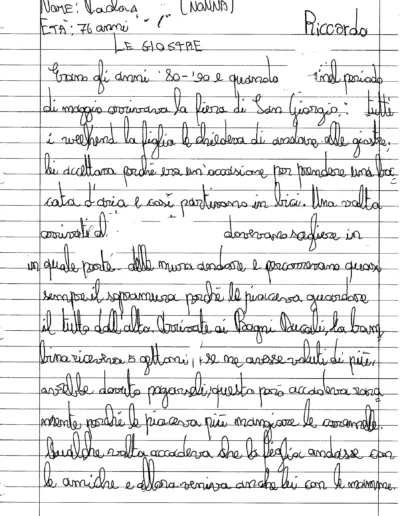 NOME: (NONNA)
ETÀ: 76 anni Riccardo
LE GIOSTRE
Erano gli anni '80-'90 e quando nel periodo
di maggio arrivava la fiera di San Giorgio, tutti
i weekend la figlia le chiedeva di andare alle giostre.
Lei accettava perché era un'occasione per prendere una boc
cata d'aria e così partivano in bici. Una volta
arrivati al dovevano scegliere in
in quale parte delle mura andare e percorrevano quasi
sempre il sopramura perché le piaceva guardare
il tutto dall'alto. Arrivate ai Bagni Ducali, la bam
bina riceveva 5 gettoni, se ne avesse voluti di più,
avrebbe dovuto pagarseli, questo però accadeva rara
mente perché le piaceva più mangiare le caramelle.
Qualche volta accadeva che la figlia andasse con
le amiche e allora veniva anche lei con le mamme.